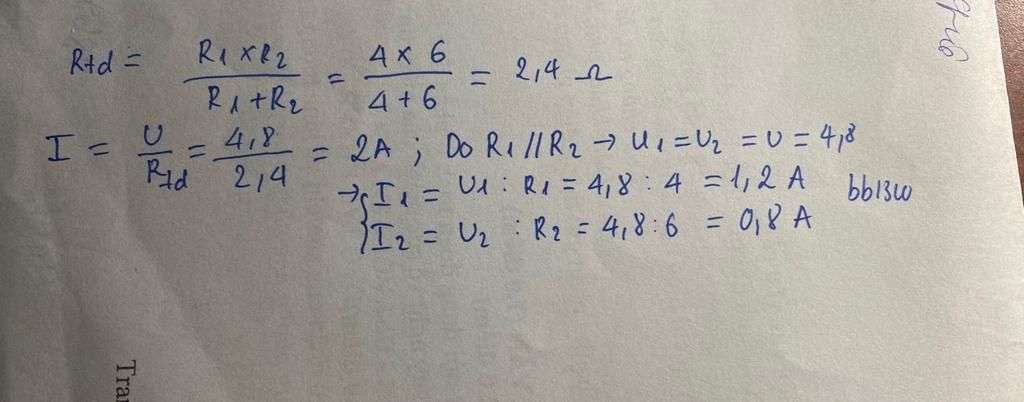 Rtd = R1 x R2 / R1 + R2 = 4 x 6 / 4 + 6 = 2,4 Ω
I = U / Rtd = 4,8 / 2,4 = 2A ; Do R1 // R2 → U1 = U2 = U = 4,8
→ { I1 = U1 : R1 = 4,8 : 4 = 1,2 A bb13w
I2 = U2 : R2 = 4,8 : 6 = 0,8 A
Tra